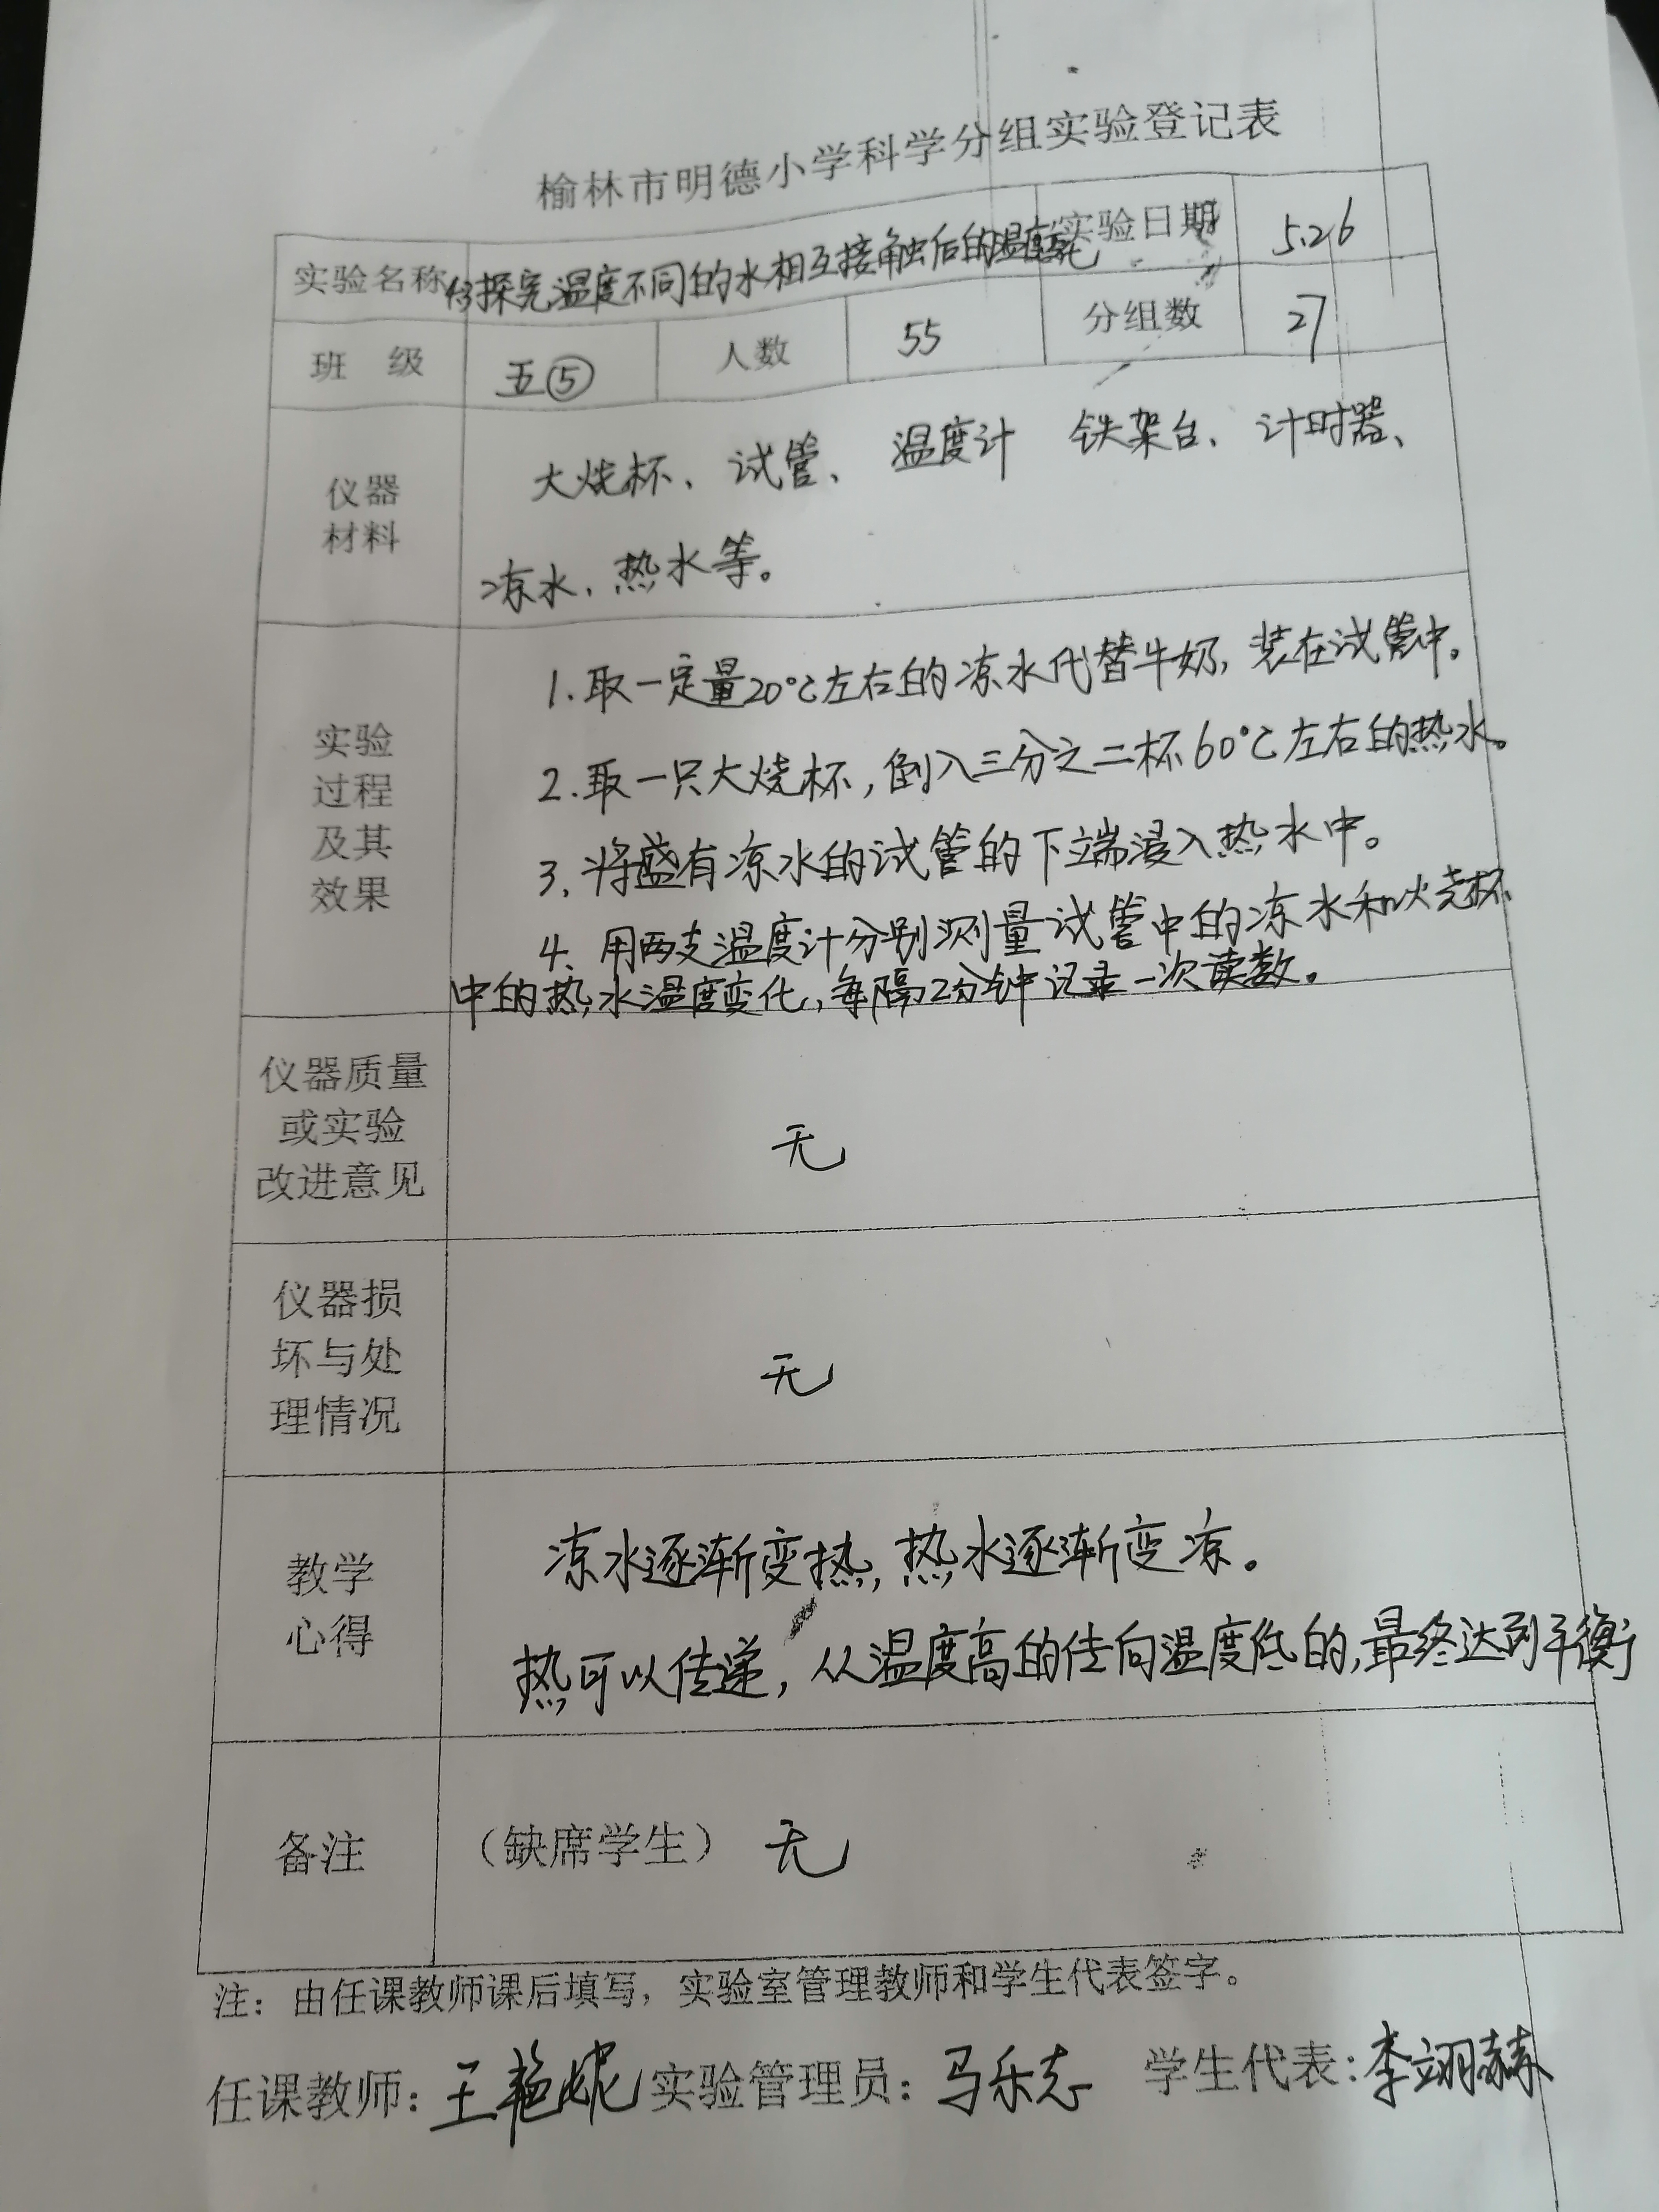 榆林市明德小学科学分组实验登记表
实验名称 43探究温度不同的水相互接触后的温度变化 实验日期 5.26
班 级 五⑤ 人数 55 分组数 27
仪器
材料
大烧杯、试管、温度计 铁架台、计时器、
凉水、热水等。
实验
过程
及其
效果
1.取一定量20℃左右的凉水代替牛奶,装在试管中。
2.取一只大烧杯,倒入三分之二杯60℃左右的热水。
3.将盛有凉水的试管的下端浸入热水中。
4.用两支温度计分别测量试管中的凉水和烧杯
中的热水温度变化,每隔2分钟记录一次读数。
仪器质量
或实验
改进意见
无
仪器损
坏与处
理情况
无
教学
心得
凉水逐渐变热,热水逐渐变凉。
热可以传递,从温度高的传向温度低的,最终达到平衡
备注 (缺席学生) 无
注:由任课教师课后填写,实验室管理教师和学生代表签字。
任课教师:王艳妮 实验管理员:马乐志 学生代表:李翊赫